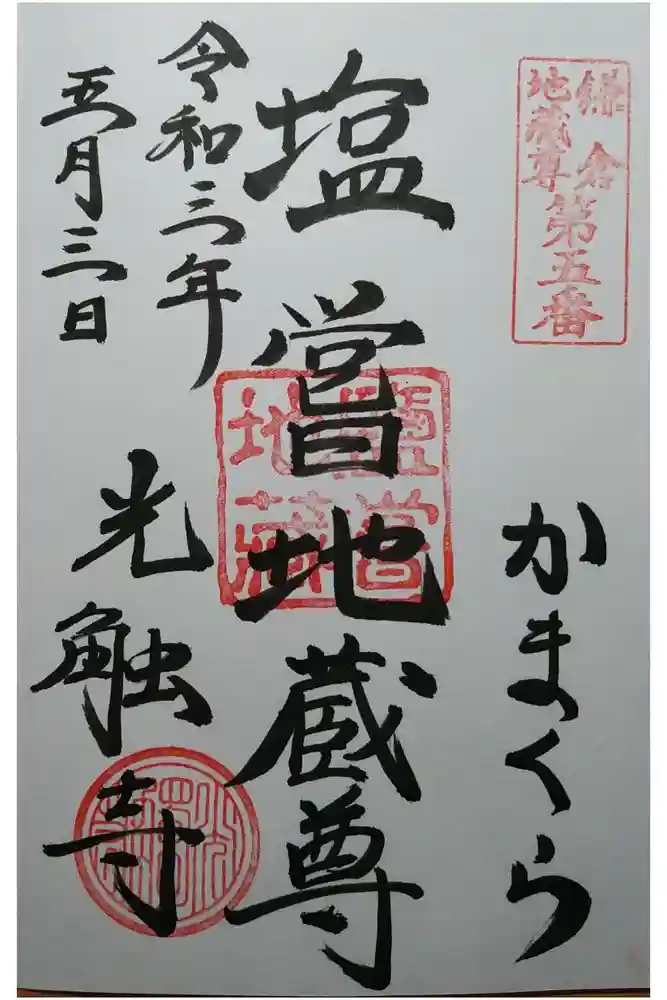 鎌倉
地蔵尊
第五番
かまくら
塩嘗地蔵尊
鹽嘗
地藏
令和三年
五月三日
光触寺